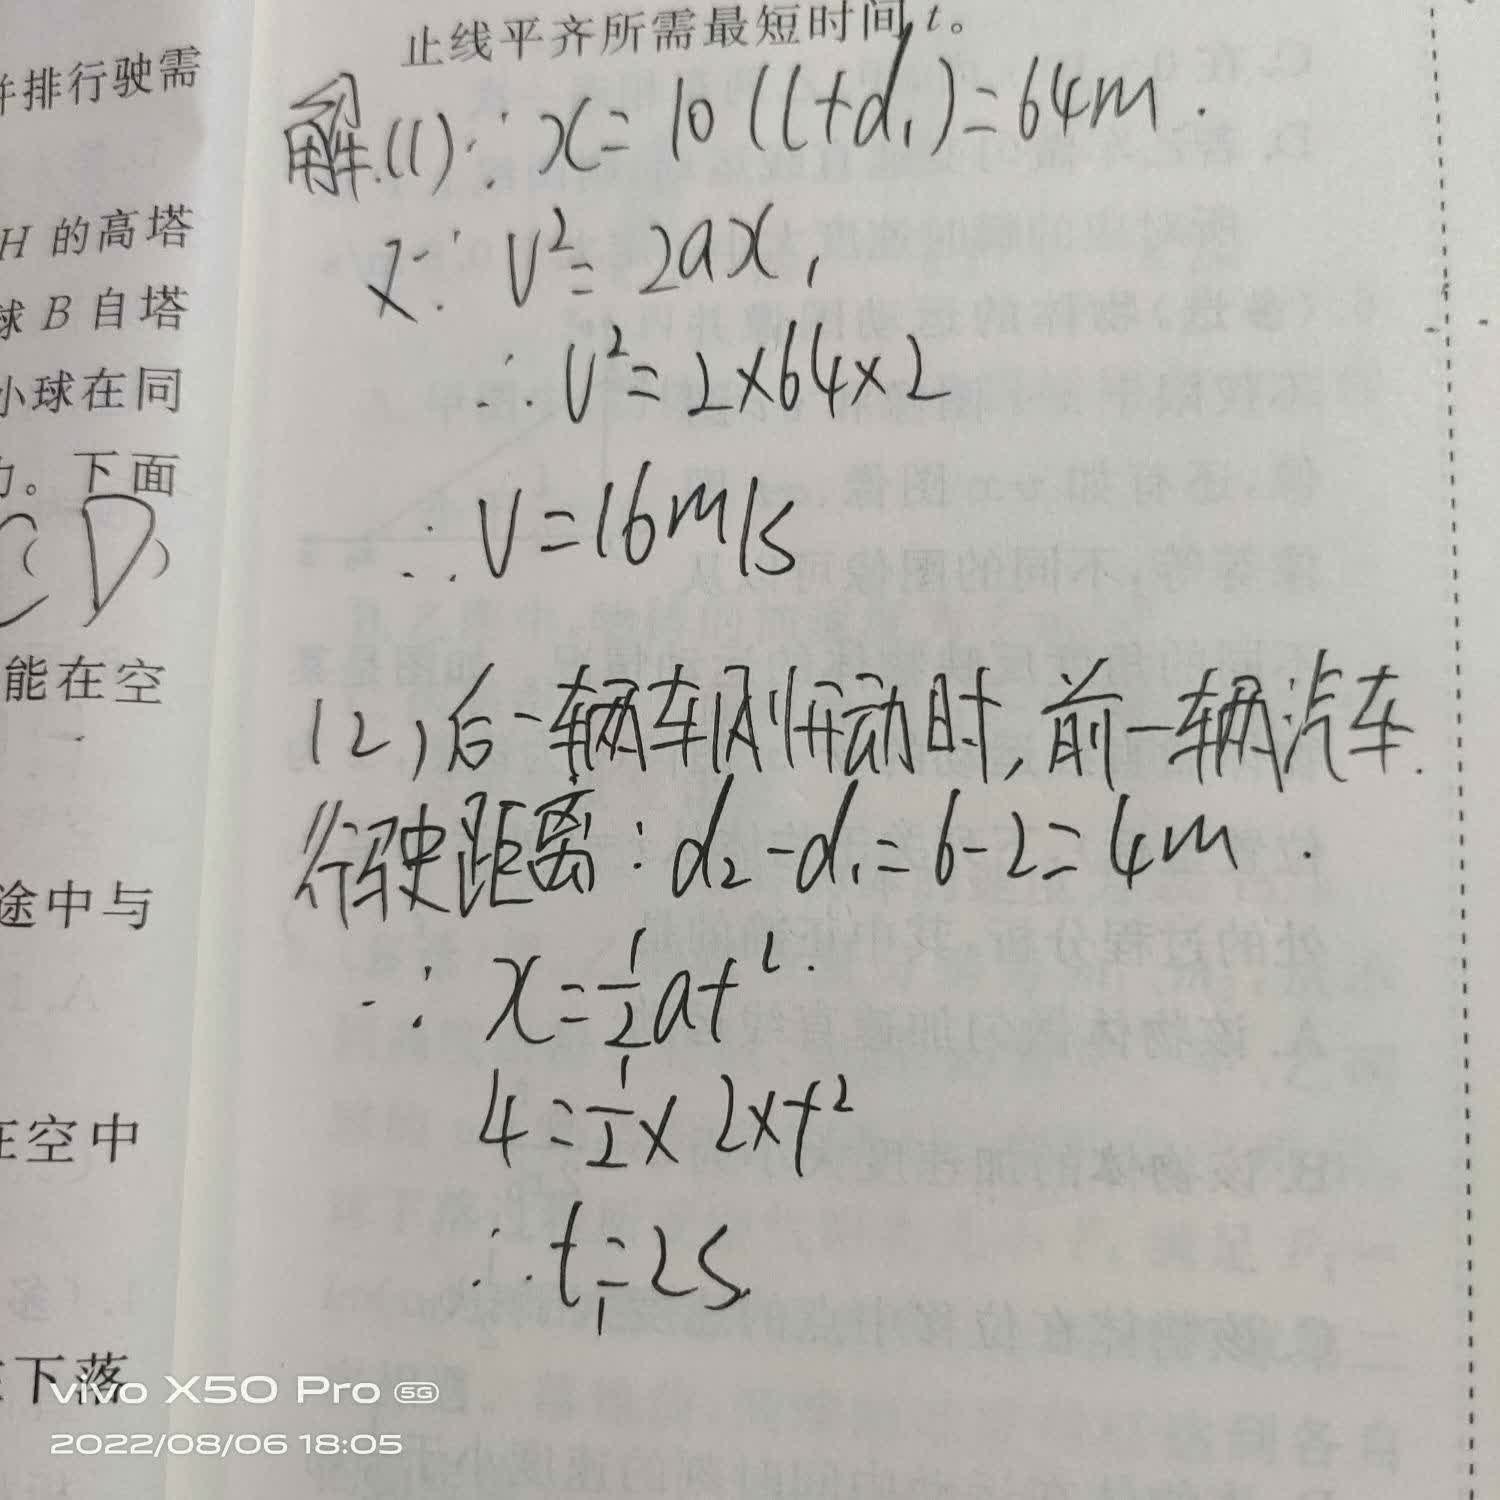 止线平齐所需最短时间 t。
并排行驶需
H 的高塔
球 B 自塔
小球在同
力。下面
CD)
能在空
途中与
在空中
下落
解.(1)∵ x=10(l+d₁)=64m.
又∵ v²=2ax,
∴ v²=2×64×2
∴ v=16m/s
(2)后一辆车刚开动时,前一辆汽车
行驶距离:d₂-d₁=6-2=4m.
∵ x=½at².
4=½×2×t²
∴ t₁=2s
vivo X50 Pro 5G
2022/08/06 18:05